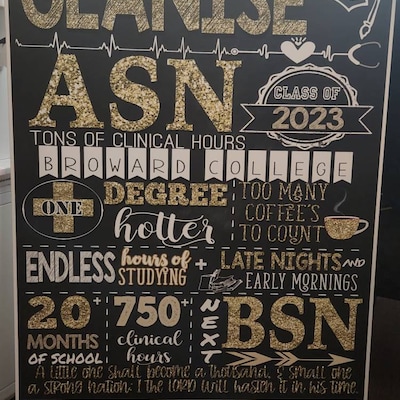 ASN
CLASS OF
2023
TONS OF CLINICAL HOURS
BROWARD COLLEGE
ONE
DEGREE
hotter
TOO MANY
COFFEE'S
TO COUNT
ENDLESS hours of
STUDYING
+
LATE NIGHTS AND
EARLY MORNINGS
20+
MONTHS
OF SCHOOL
750+
clinical
hours
NEXT
BSN
A little one shall become a thousand, & small one
a strong nation: I the LORD will hasten it in his time.